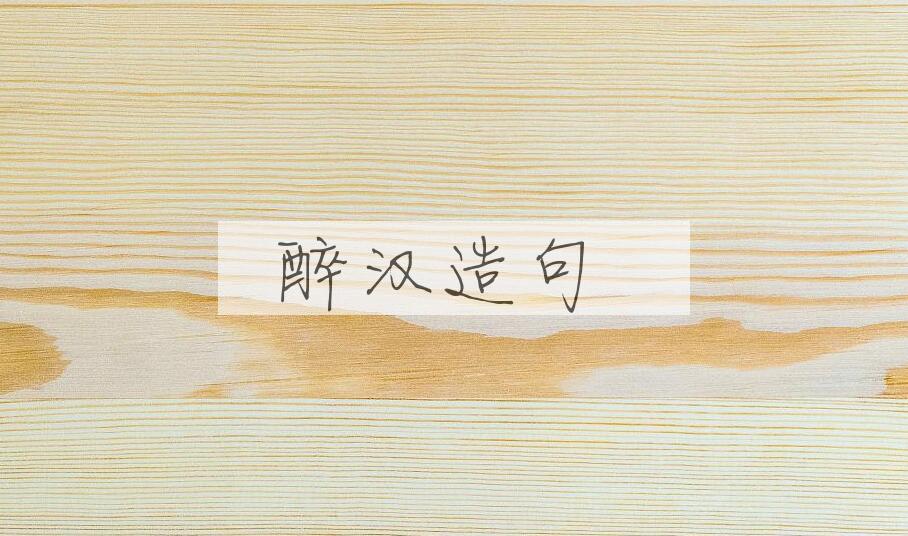 醉汉造句